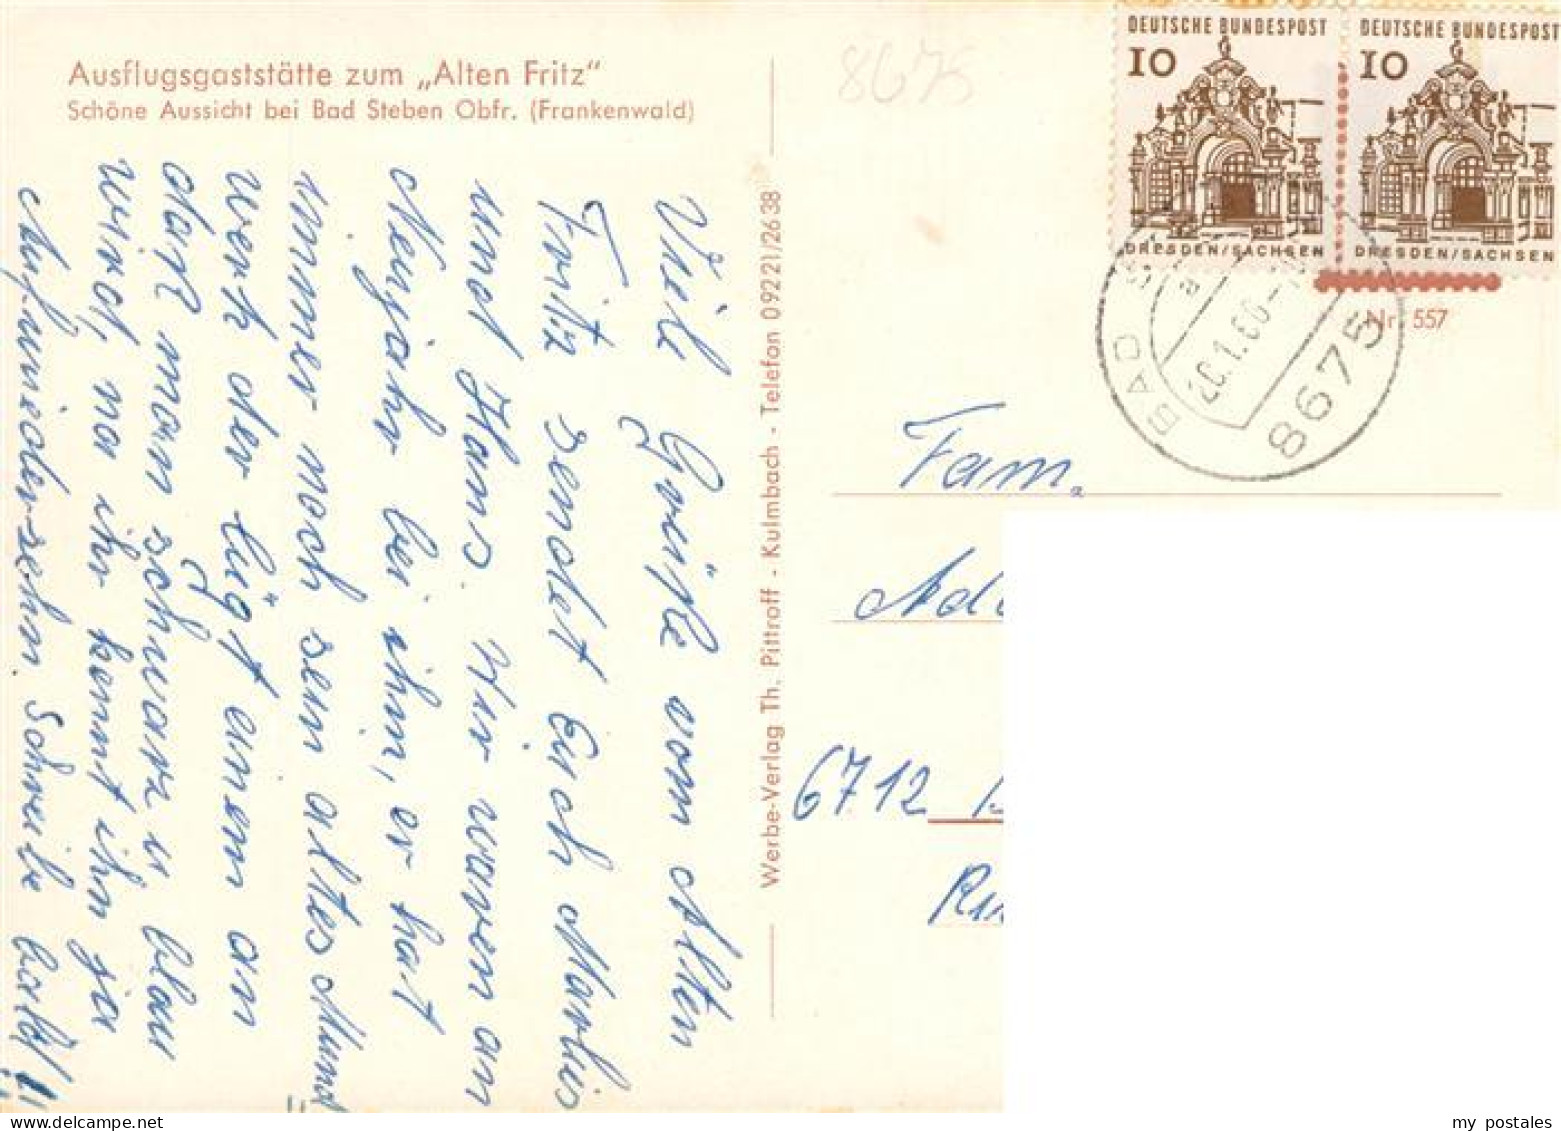 Ausflugsgaststätte zum „Alten Fritz“
Schöne Aussicht bei Bad Steben Obfr. (Frankenwald)
8675
DEUTSCHE BUNDESPOST
10
DRESDEN/SACHSEN
DEUTSCHE BUNDESPOST
10
DRESDEN/SACHSEN
BAD S
a
20.1.66-1
8675
Nr. 557
Viele Grüße vom Alten
Fritz sendet Euch Marlies
und Hans. Wir waren an
Neujahr bei ihm, er hat
immer noch sein altes Mund
werk der lügt einen an
daß man schwarz u blau
wird, na ihr kennt ihn ja
Aufwiedersehn. Schreibe bald!!
Werbe-Verlag Th. Pittroff - Kulmbach - Telefon 09221/2638
Fam.
6712
my postales